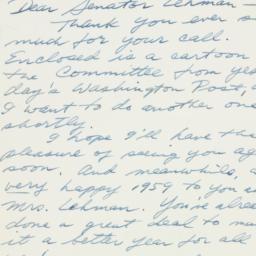 Dear Senator Lehman —
Thank you ever s
much for your call.
Enclosed is a cartoon
the Committee from yes
day's Washington Post,
I want to do another one
shortly.
I hope I'll have the
pleasure of seeing you ag
soon. And meanwhile, a
very happy 1959 to you a
Mrs. Lehman. You've alrea
done a great deal to m
it a better year for all